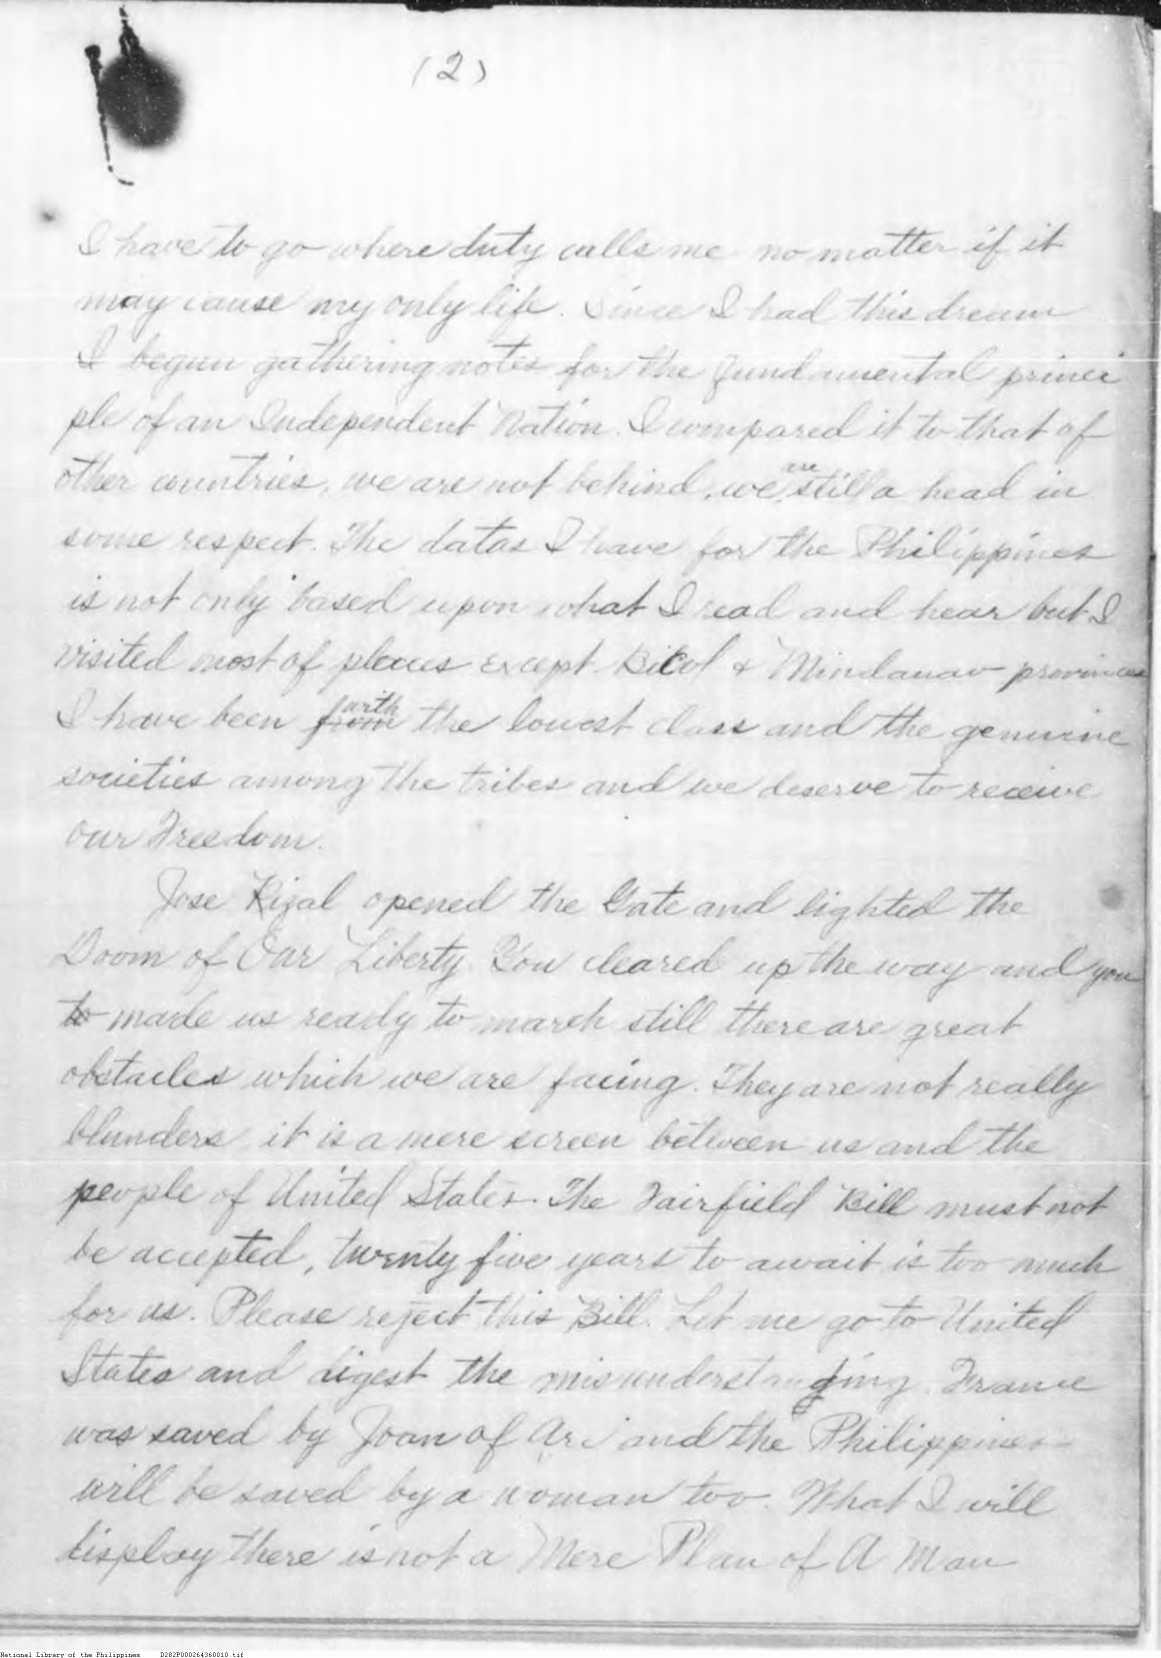 (2)
I have to go where duty calls me no matter if it
may cause my only life. Since I had this dream
I begun gathering notes for the fundamental princi
ple of an Independent Nation. I compared it to that of
other countries, we are not behind, we are still a head in
some respect. The datas I have for the Philippines
is not only based upon what I read and hear but I
visited most of places except Bicol & Mindanao provinces
I have been from with the lowest class and the genuine
societies among the tribes and we deserve to receive
our Freedom.
Jose Rizal opened the Gate and lighted the
Doom of Our Liberty. You cleared up the way and you
to made us ready to march still there are great
obstacles which we are facing. They are not really
blunders it is a mere screen between us and the
people of United States. The Fairfield Bill must not
be accepted, twenty five years to await is too much
for us. Please reject this Bill. Let me go to United
States and digest the misunderstanding. France
was saved by Joan of Arc and the Philippines
will be saved by a woman too. What I will
display there is not a Mere Plan of A Man
National Library of the Philippines D282P000264360010.tif